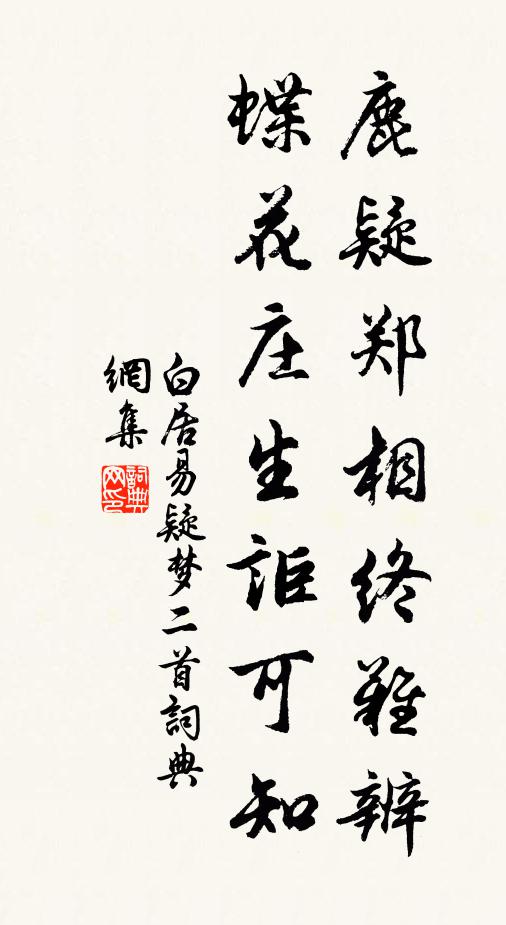 鹿疑郑相终難辨
蝶花庄生詎可知
白居易疑梦二首詞典
網集
詞典
网印